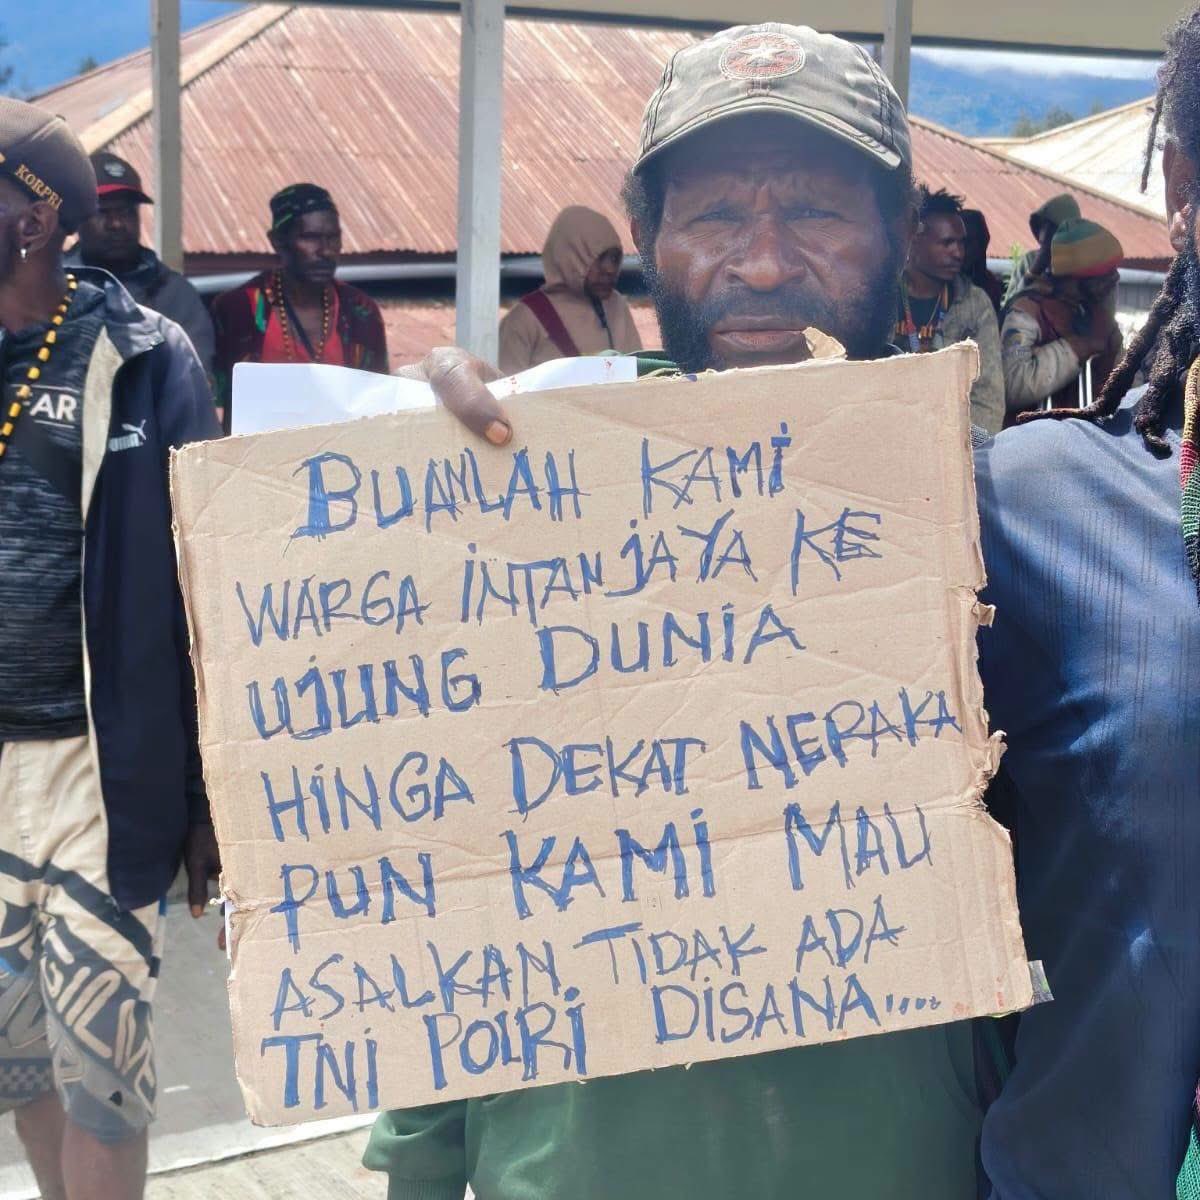 KORPRI
FAR
PUMA
BUANLAH KAMI
WARGA INTAN JAYA KE
UJUNG DUNIA
HINGA DEKAT NERAKA
PUN KAMI MAU
ASALKAN TIDAK ADA
TNI POLRI DISANA....